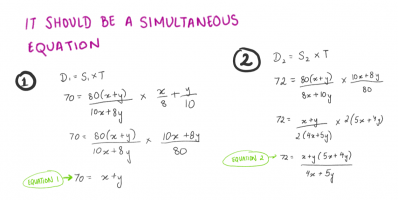 IT SHOULD BE A SIMULTANEOUS
EQUATION
1
D₁ = S₁ × T
70 = 80(x+y)/10x+8y × x/8 + y/10
70 = 80(x+y)/10x+8y × 10x+8y/80
EQUATION 1 → 70 = x+y
2
D₂ = S₂ × T
72 = 80(x+y)/8x+10y × 10x+8y/80
72 = x+y/2(4x+5y) × 2(5x+4y)
EQUATION 2 → 72 = x+y(5x+4y)/4x+5y